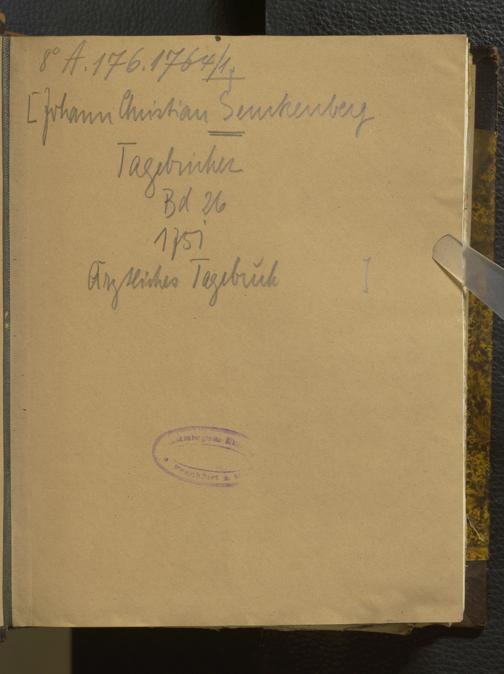 8° A.176.1764/1,
[Johann Christian Senckenberg
Tagebücher
Bd 26
1751
Ärztliches Tagebuch ]
Frankfurt a. M.